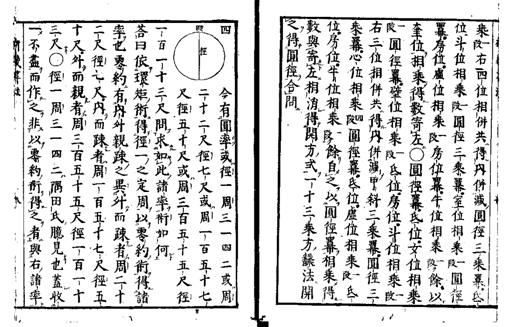 乘段右四位相併共得内併減圓徑三乘冪氐
位斗位相乘段圓徑三乘冪室位相乘段圓徑
冪房位虛位相乘段房位冪牛位相乘段餘以
奎位相乘得數寄左〇圓徑冪氐位女位相乘
段圓徑冪壁位相乘段氐位房位斗位相乘段
右三位相併共得内併減甲斜三乘冪圓徑三
乘冪心位相乘段圓徑冪氐位虛位相乘段氐
位房位牛位相乘段餘自之以圓徑冪相乘得
數與寄左相消得開方式一十三乘方飜法開
之得圓徑合問
四 今有圓率或徑一周三一四二或周
徑
二十二尺徑七尺或周一百五十七
尺徑五十尺或周三百五十五尺徑
一百一十三尺問求如此諸率術如何
答曰依環矩術得徑一之定周以零約術得諸
率也零約有内外親疎之異外而疎者周二十
二尺徑七尺内而疎者周一百五十七尺徑五
十尺外而親者周三百五十五尺徑一百一十
三尺〇徑一周三一四二隅田氏臆見也蓋收
不盡而作之非以零約術得之者與右諸率